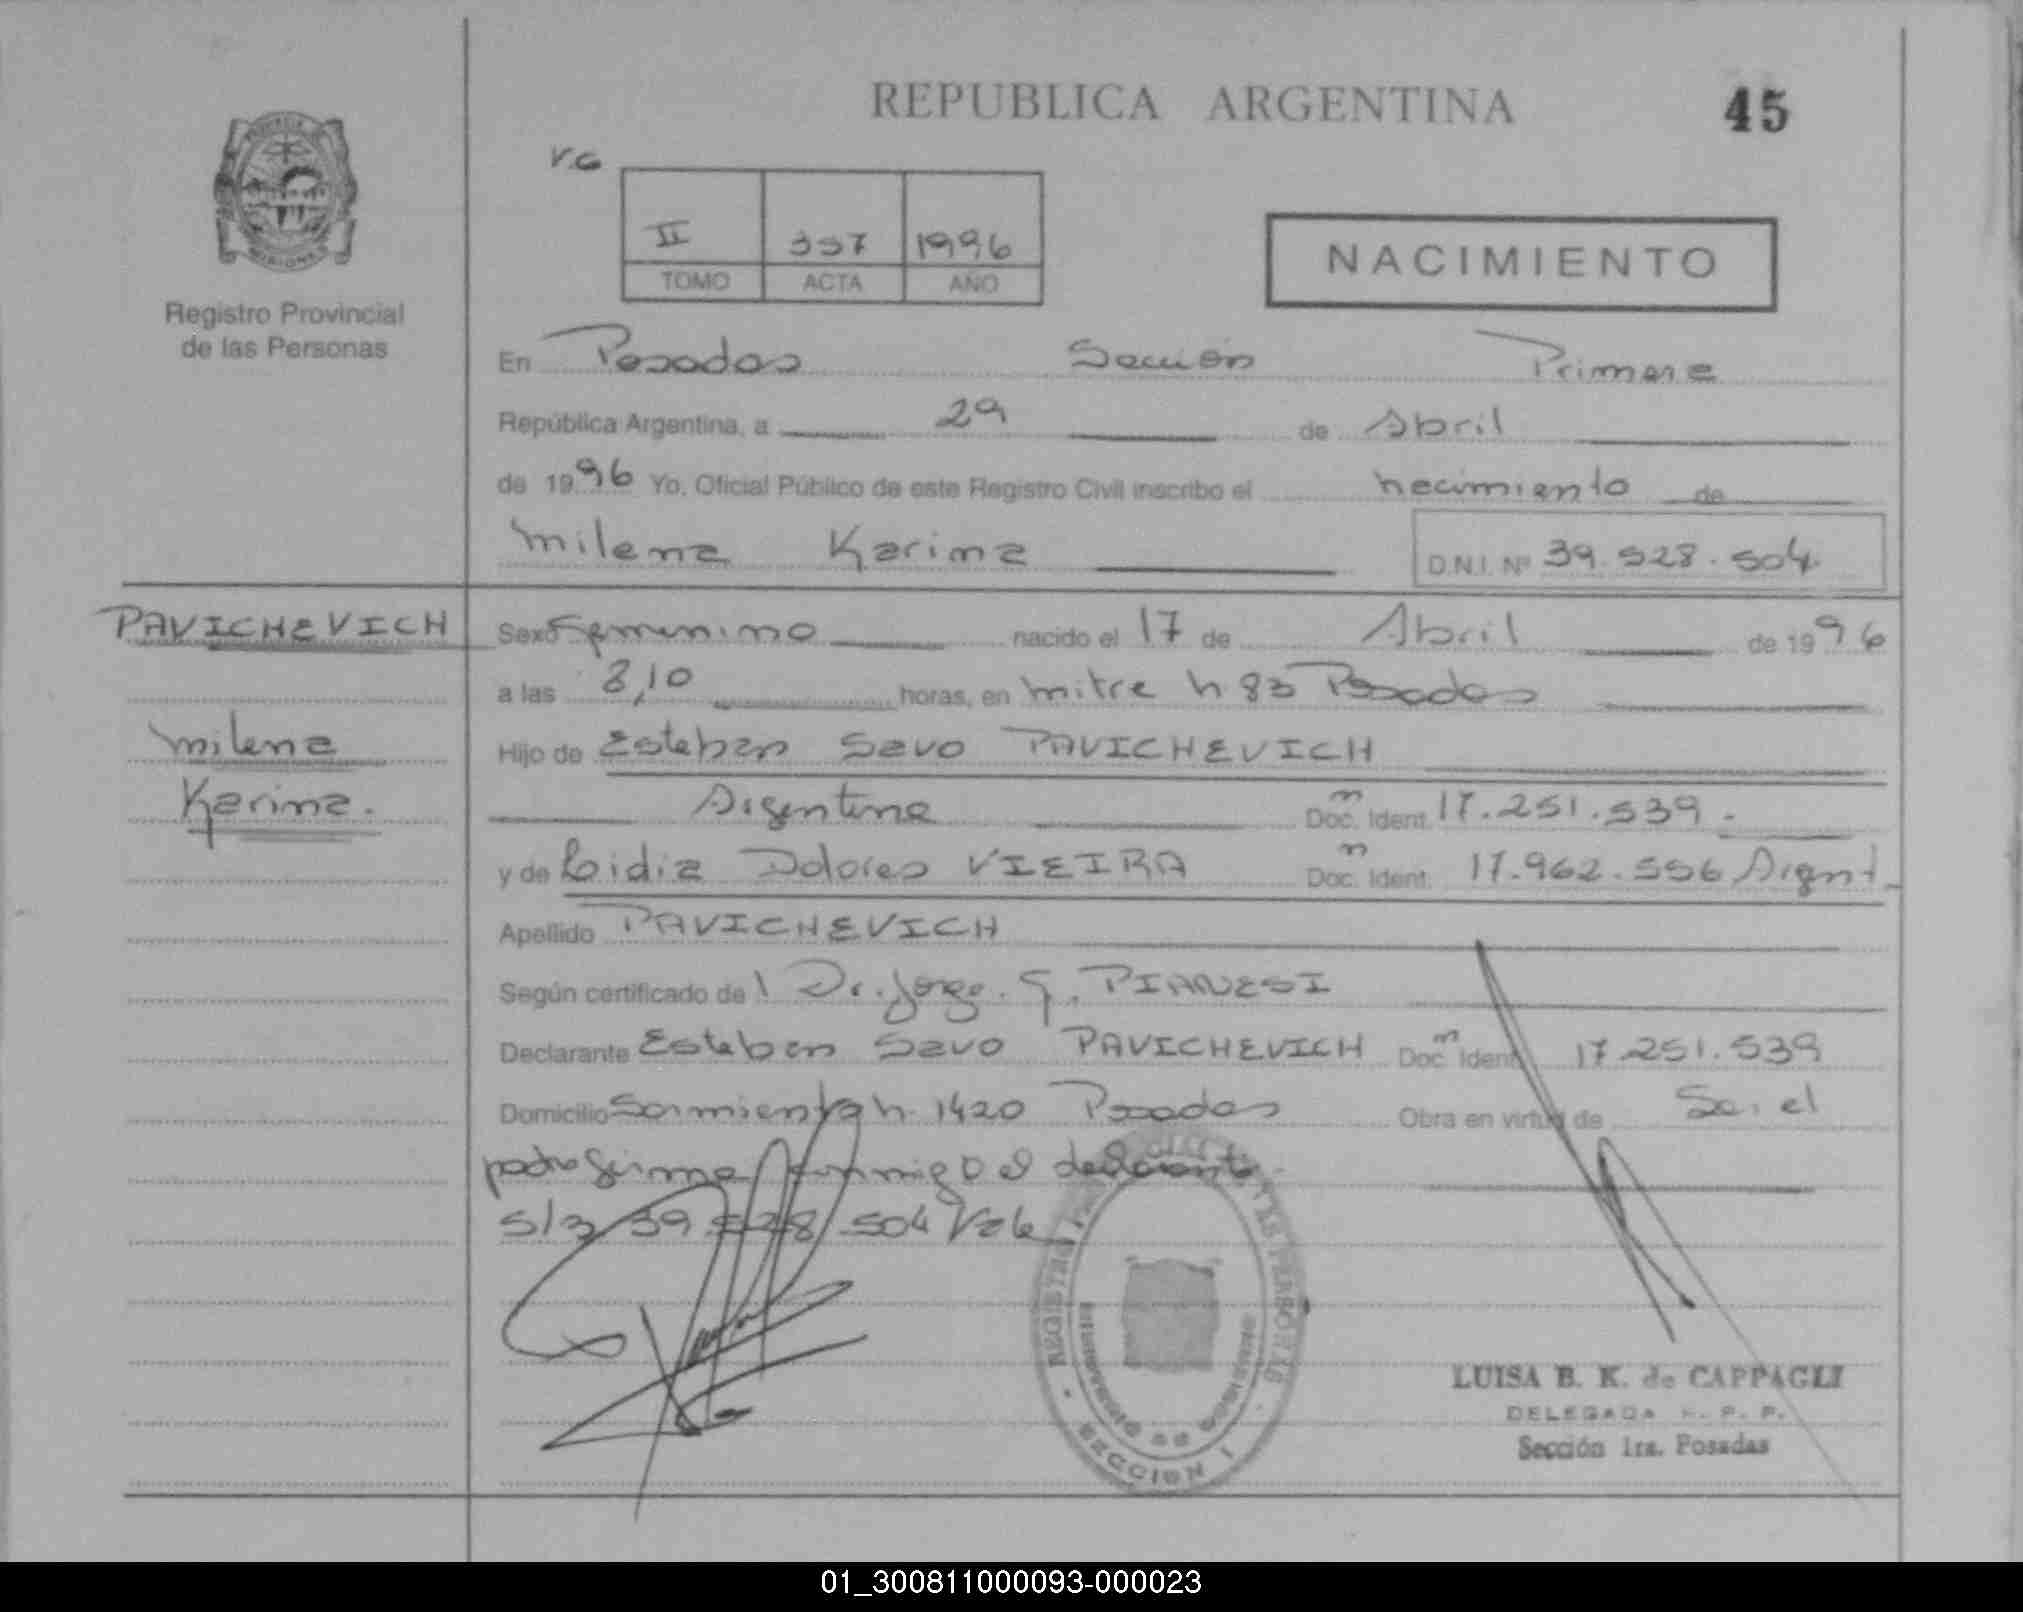 REPUBLICA ARGENTINA 45
V.G
II 337 1996
TOMO ACTA AÑO
NACIMIENTO
PROVINCIA
MISIONES
Registro Provincial
de las Personas
En Posadas Sección Primera
República Argentina, a 29 de Abril
de 1996 Yo, Oficial Público de este Registro Civil inscribo el nacimiento de
Milena Karina D.N.I. Nº 39.528.504.
PAVICHEVICH
Milena
Karina.
Sexo Femenino nacido el 17 de Abril de 1996
a las 8,10 horas, en Mitre n 83 Posadas
Hijo de Esteban Savo PAVICHEVICH
Argentina Doc. Ident. m 17.251.539.-
y de Lidia Dolores VIEIRA Doc. Ident. m 17.962.556 Argent.
Apellido PAVICHEVICH
Según certificado del Dr. Jorge. G. PIANESI
Declarante Esteban Savo PAVICHEVICH Doc. Ident. m 17.251.539
Domicilio Sarmiento n. 1420 Posadas Obra en virtud de Ser el
padre firma conmigo el declarante.
S/a 39.528.504 Vale
REGISTRO PROVINCIAL DE LAS PERSONAS
MINISTERIO DE GOBIERNO
SECCION 1
LUISA B. K. de CAPPAGLI
DELEGADA R. P. P.
Sección 1ra. Posadas
01_300811000093-000023